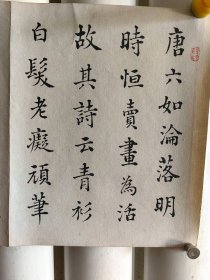 唐六如淪落明
時恒賣畫為活
故其詩云青衫
白髮老癡頑筆